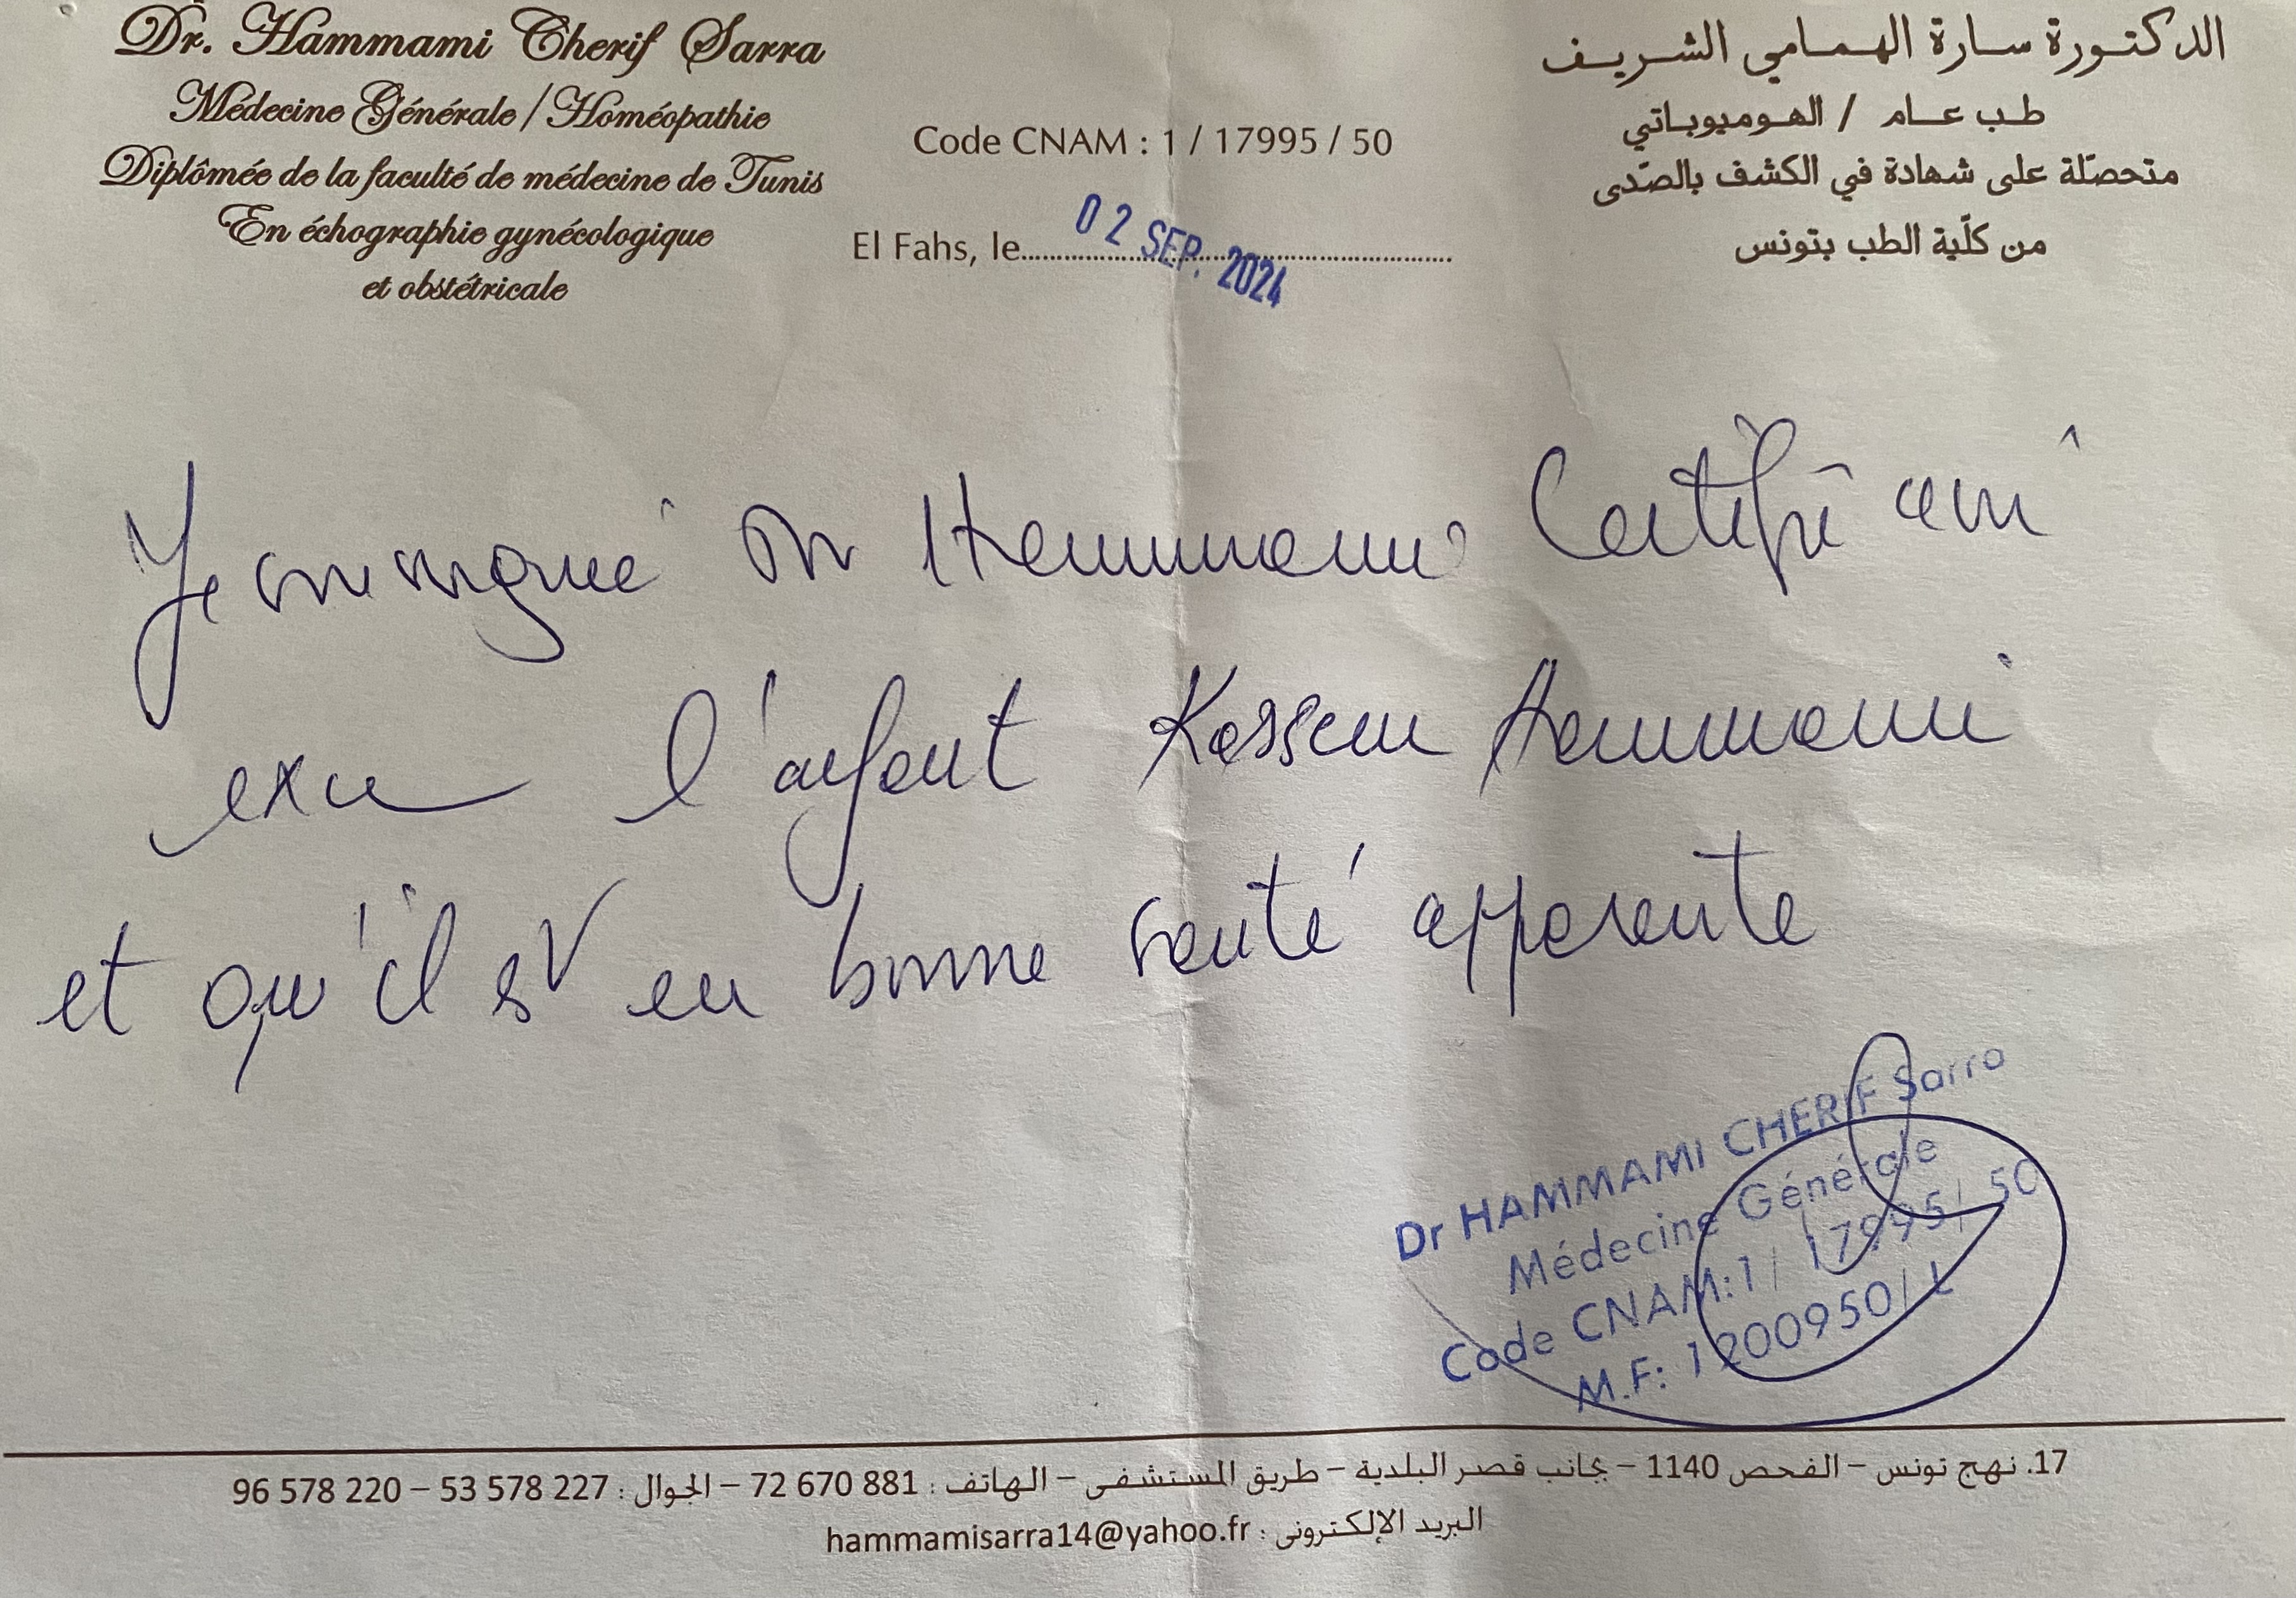 Dr. Hammami Cherif Sarra
Médecine Générale / Homéopathie
Diplômée de la faculté de médecine de Tunis
En échographie gynécologique
et obstétricale
Code CNAM : 1 / 17995 / 50
El Fahs, le 02 SEP. 2024
الدكتورة سارة الهمامي الشريف
طب عام / الهوميوباتي
متحصّلة على شهادة في الكشف بالصّدى
من كلّية الطب بتونس
Je soussigné Dr Hammami Certifie avoir
exa l'enfant Kassem Hammami
et qu'il est en bonne santé apparente
Dr HAMMAMI CHERIF Sarra
Médecine Générale
Code CNAM: 1 / 17995 / 50
M.F: 1200950/ L
17. نهج تونس – الفحص 1140 – بجانب قصر البلدية – طريق المستشفى – الهاتف : 72 670 881 – الجوال : 53 578 227 – 96 578 220
البريد الإلكتروني : hammamisarra14@yahoo.fr